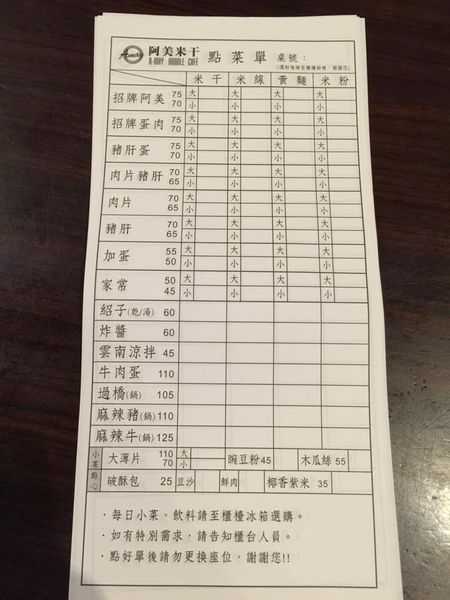 Amay 阿美米干 點菜單 桌號：
A-MAY NOODLE CAFE
米干 米線 黃麵 米粉
招牌阿美 75 大 大 大 大
70 小 小 小 小
招牌蛋肉 75 大 大 大 大
70 小 小 小 小
豬肝蛋 75 大 大 大 大
70 小 小 小 小
肉片豬肝 70 大 大 大 大
65 小 小 小 小
肉片 70 大 大 大 大
65 小 小 小 小
豬肝 70 大 大 大 大
65 小 小 小 小
加蛋 55 大 大 大 大
50 小 小 小 小
家常 50 大 大 大 大
45 小 小 小 小
紹子(乾/湯) 60
炸醬 60
雲南涼拌 45
牛肉蛋 110
過橋(鍋) 105
麻辣豬(鍋) 110
麻辣牛(鍋) 125
小菜點心 大薄片 110 大 豌豆粉 45 木瓜絲 55
70 小
破酥包 25 豆沙 鮮肉 椰香紫米 35
．每日小菜、飲料請至櫃檯冰箱選購。
．如有特別需求，請告知櫃台人員。
．點好單後請勿更換座位，謝謝您!!